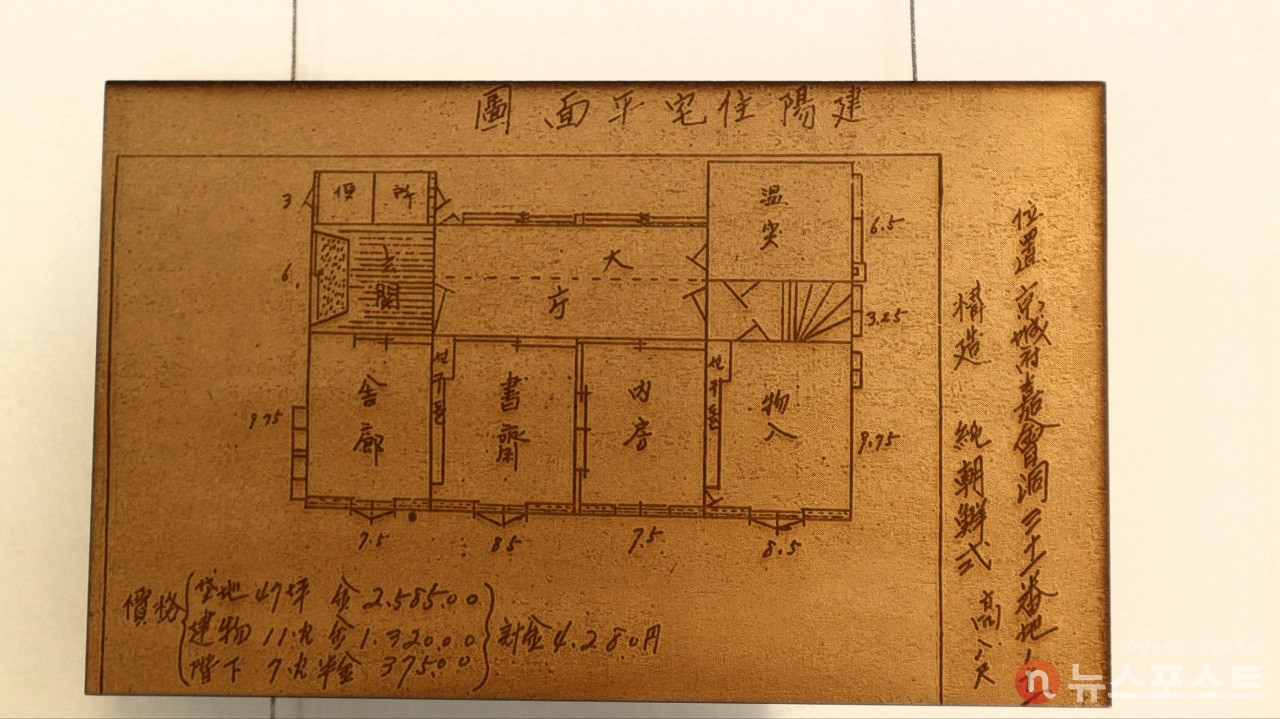 圖面平宅住陽建
便 所
3
玄關
6.
大
庁
温突
6.5
3.25
선
舍廊
書齋
內房
物入
9.75
9.75
7.5
8.5
7.5
8.5
位置 京城府嘉會洞三十一番地
構造 純朝鮮式 高八尺
價格
垈地 47坪 金 2.585.00
建物 11.九 金 1.320.00
階下 7.九半金 375.00
計金 4.280円
뉴스포스트